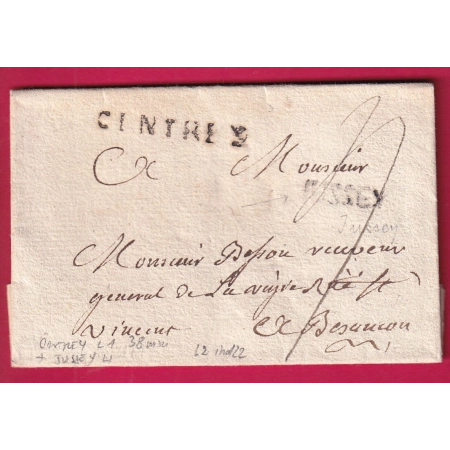 CINTREY
A Monsieur
JUSSEY
Jussey
Monsieur Besson receveur
general de La
Vincent A Besancon
CINTREY L1 38 mm
+ JUSSEY L1